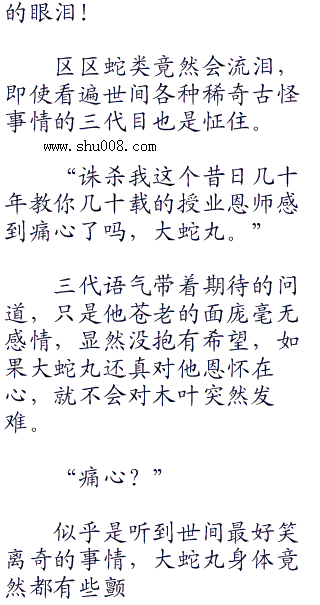 的眼泪！
区区蛇类竟然会流泪，
即使看遍世间各种稀奇古怪
事情的三代目也是怔住。
www.shu008.com
“诛杀我这个昔日几十
年教你几十载的授业恩师感
到痛心了吗，大蛇丸。”
三代语气带着期待的问
道，只是他苍老的面庞毫无
感情，显然没抱有希望，如
果大蛇丸还真对他恩怀在
心，就不会对木叶突然发
难。
“痛心？”
似乎是听到世间最好笑
离奇的事情，大蛇丸身体竟
然都有些颤